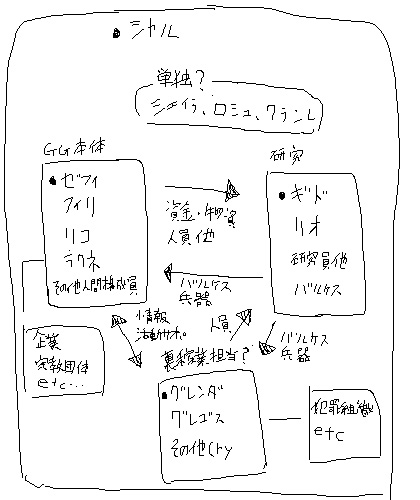 シャル
単独?
シェイラ、ロミュ、クランL
GG本体
研究
ゼフィ
フィリ
リコ
ラクネ
その他人間構成員
資金・物資
人員他
ギド
リオ
研究員他
バルケス
バルケス
兵器
企業
宗教団体
etc...
情報
活動サポ.
人員
バルケス
兵器
裏稼業担当?
グレンダ
グレゴス
その他(ry
犯罪組織
etc